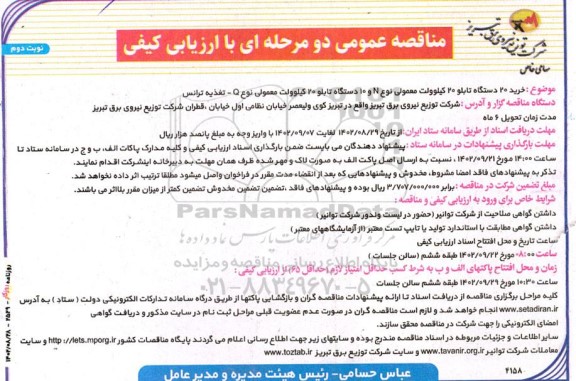 شرکت توزیع نیروی برق تبریز
سهامی خاص
مناقصه عمومی دو مرحله ای با ارزیابی کیفی
نوبت دوم
موضوع : خرید ۲۰ دستگاه تابلو ۲۰ کیلوولت معمولی نوع N و ۱۰ دستگاه تابلو ۲۰ کیلوولت معمولی نوع Q - تغذیه ترانس
دستگاه مناقصه گزار و آدرس : شرکت توزیع نیروی برق تبریز واقع در تبریز کوی ولیعصر خیابان نظامی اول خیابان ،قطران شرکت توزیع نیروی برق تبریز
مدت زمان تحویل ۶ ماه
مهلت دریافت اسناد از طریق سامانه ستاد ایران: از تاریخ ۱۴۰۲/۰۸/۲۹ لغایت ۱۴۰۲/۰۹/۰۷ با واریز وجه به مبلغ پانصد هزار ریال
مهلت بارگذاری پیشنهادات در سامانه ستاد : پیشنهاد دهندگان می بایست ضمن بارگذاری اسناد ارزیابی کیفی و کلیه مدارک پاکات الف، ب و ج در سامانه ستاد تا
ساعت ۱۴:۰۰ مورخ ۱۴۰۲/۰۹/۲۱ ، نسبت به ارسال اصل پاکت الف به صورت لاک و مهر شده ظرف همان مهلت به دبیرخانه اینشرکت اقدام نمایند.
تذکر به پیشنهادهای فاقد امضا مشروط، مخدوش و پیشنهادهایی که بعد از انقضاء مدت مقرر در فراخوان واصل میشود مطلقا ترتیب اثر داده نخواهد شد.
مبلغ تضمین شرکت در مناقصه : برابر ۳/۷۰۷/۰۰۰/۰۰۰ ریال بوده و پیشنهادهای فاقد ،تضمین تضمین مخدوش تضمین کمتر از میزان مقرر بلااثر می باشند.
شرایط خاص برای ورود به ارزیابی کیفی و مناقصه :
داشتن گواهی صلاحیت از شرکت توانیر (حضور در لیست وندور شرکت توانیر)
داشتن گواهی مطابقت با استاندارد تولید یا تایپ تست معتبر (از آزمایشگاههای معتبر)
ساعت تاریخ و محل افتتاح اسناد ارزیابی کیفی
ساعت ۰۸:۰۰ مورخ ۱۴۰۲/۰۹/۲۲ طبقه ششم (سالن جلسات)
زمان و محل افتتاح پاکتهای الف و ب به شرط کسب حداقل امتیاز لازم (حداقل ۶۵) از ارزیابی کیفی :
۱۰:۳۰ مورخ ۱۴۰۲/۰۹/۲۹ طبقه ششم سالن جلسات
کلیه مراحل برگزاری مناقصه از دریافت اسناد تا ارائه پیشنهادات مناقصه گران و بازگشایی پاکتها از طریق درگاه سامانه تدارکات الکترونیکی دولت ( ستاد ) به آدرس
www.setadiran.ir انجام خواهد شد و لازم است مناقصه گران در صورت عدم عضویت قبلی مراحل ثبت نام در سایت مذکور و دریافت گواهی
امضای الکترونیکی را جهت شرکت در مناقصه محقق سازند.
سایر اطلاعات و جزئیات مربوطه در اسناد مناقصه مندرج بوده و سایتهای زیر جهت اطلاع رسانی اعلام می گردند پایگاه مناقصات کشور http://iets.mporg.ir و سایت
معاملات شرکت توانیر www.tavanir.org.ir و سایت شرکت توزیع برق تبریز www.toztab.ir
۴۱۵۸
عباس حسامی- رئیس هیئت مدیره و مدیر عامل
ParsNamadData
مرکز فرآوری اطلاعات پارس نماد داده ها
پایگاه اطلاع رسانی مناقصه و مزایده
۰۲۱-۸۸۳۴۹۶۷۰-۵